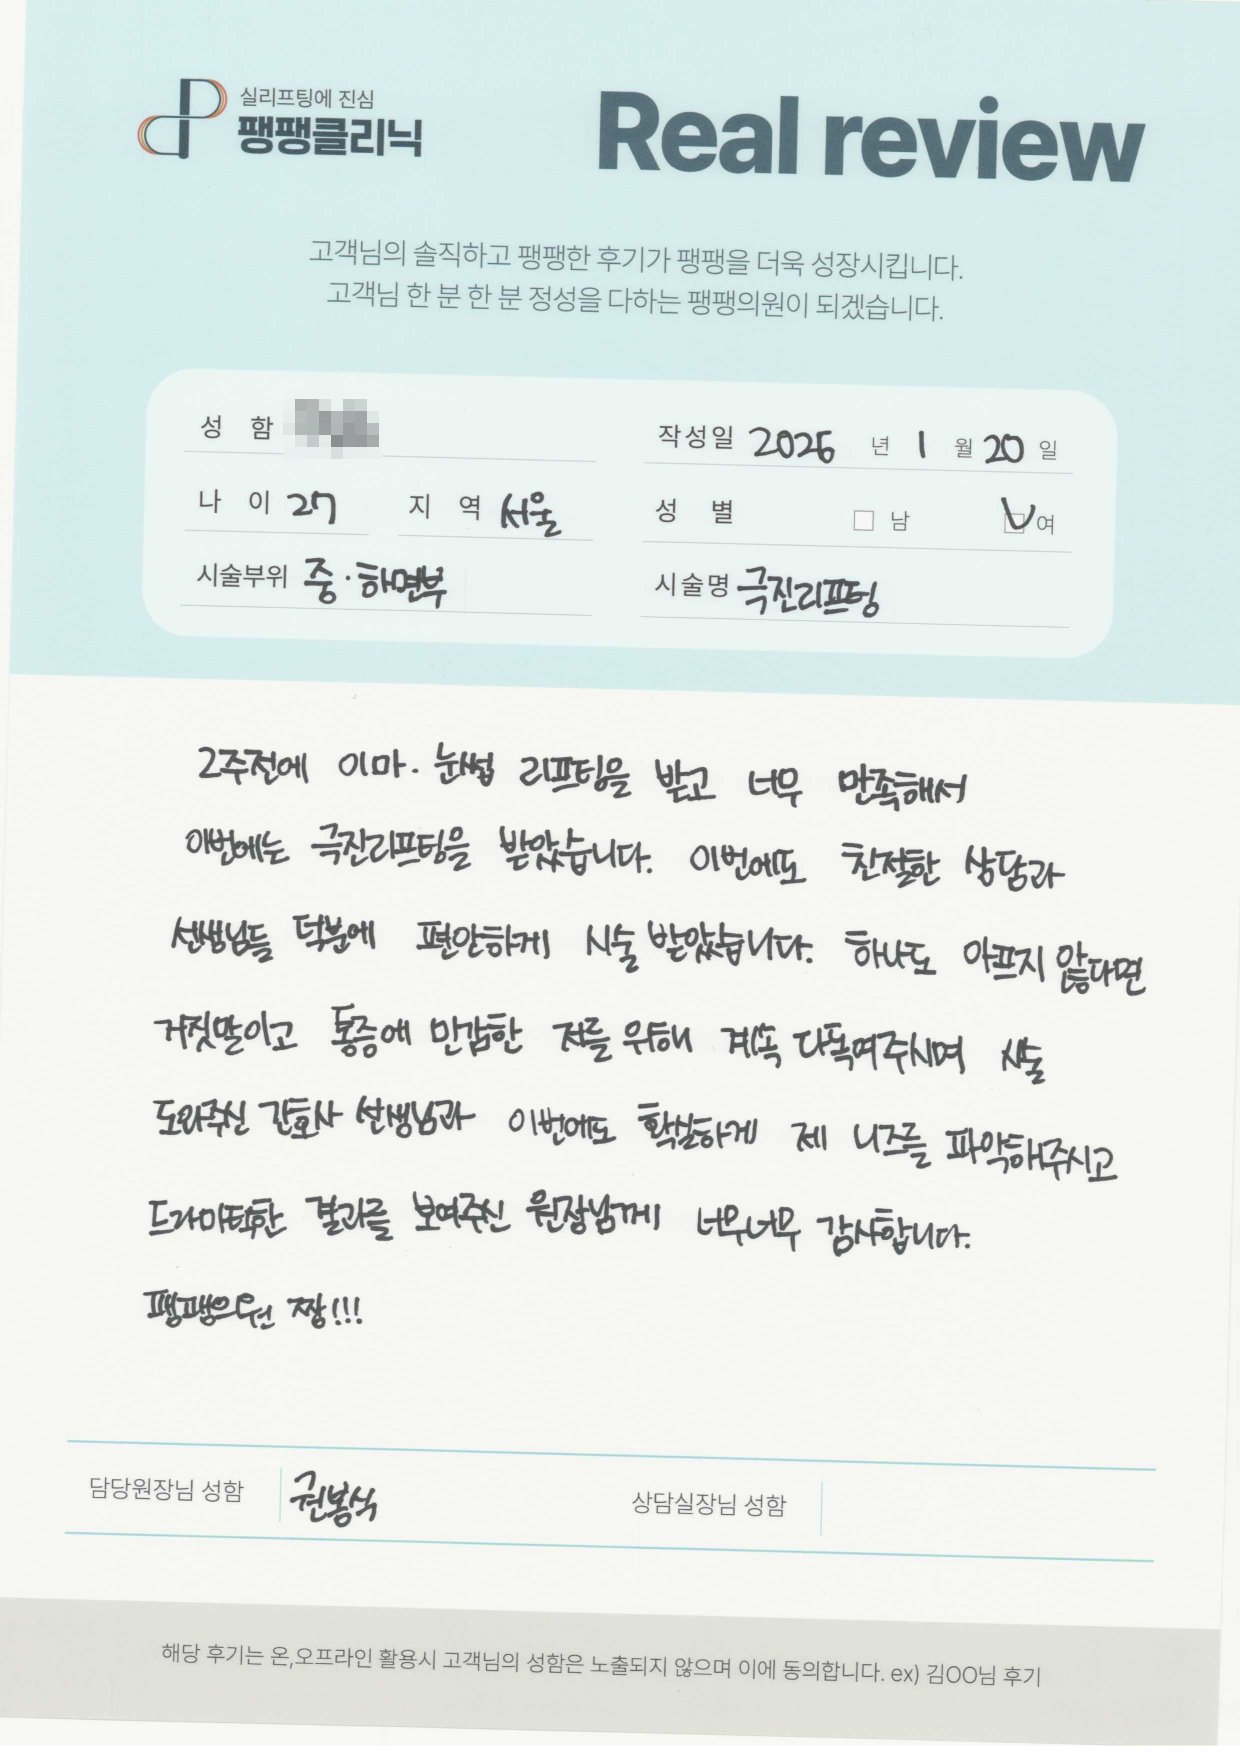 실리프팅에 진심
팽팽클리닉
Real review
고객님의 솔직하고 팽팽한 후기가 팽팽을 더욱 성장시킵니다.
고객님 한 분 한 분 정성을 다하는 팽팽의원이 되겠습니다.
성 함
작성일 2026 년 1 월 20 일
나 이 27 지 역 서울 성 별 남 여
시술부위 중·하면부 시술명 극진리프팅
2주전에 이마·눈썹 리프팅을 받고 너무 만족해서
이번에는 극진리프팅을 받았습니다. 이번에도 친절한 상담과
선생님들 덕분에 편안하게 시술 받았습니다. 하나도 아프지 않다면
거짓말이고 통증에 민감한 저를 위해 계속 다독여주시며 시술
도와주신 간호사 선생님과 이번에도 확실하게 제 니즈를 파악해주시고
드라마틱한 결과를 보여주신 원장님께 너무너무 감사합니다.
팽팽의원 짱!!!
담당원장님 성함 권봉식 상담실장님 성함
해당 후기는 온,오프라인 활용시 고객님의 성함은 노출되지 않으며 이에 동의합니다. ex) 김OO님 후기